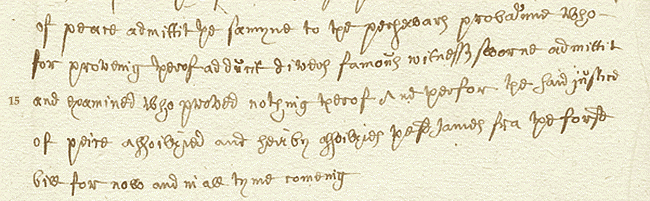 of peace admittit þe samyne to þe perschewaris probatione Who
for proveing þerof adducit diverss famous witnessis sworne admittit
15 and examined Who proved nothing þerof And þerfor the said justice
of peice assoilzied and heirby assoilzies þe sd James fra þe forsd
bill for now and in all tyme comeing